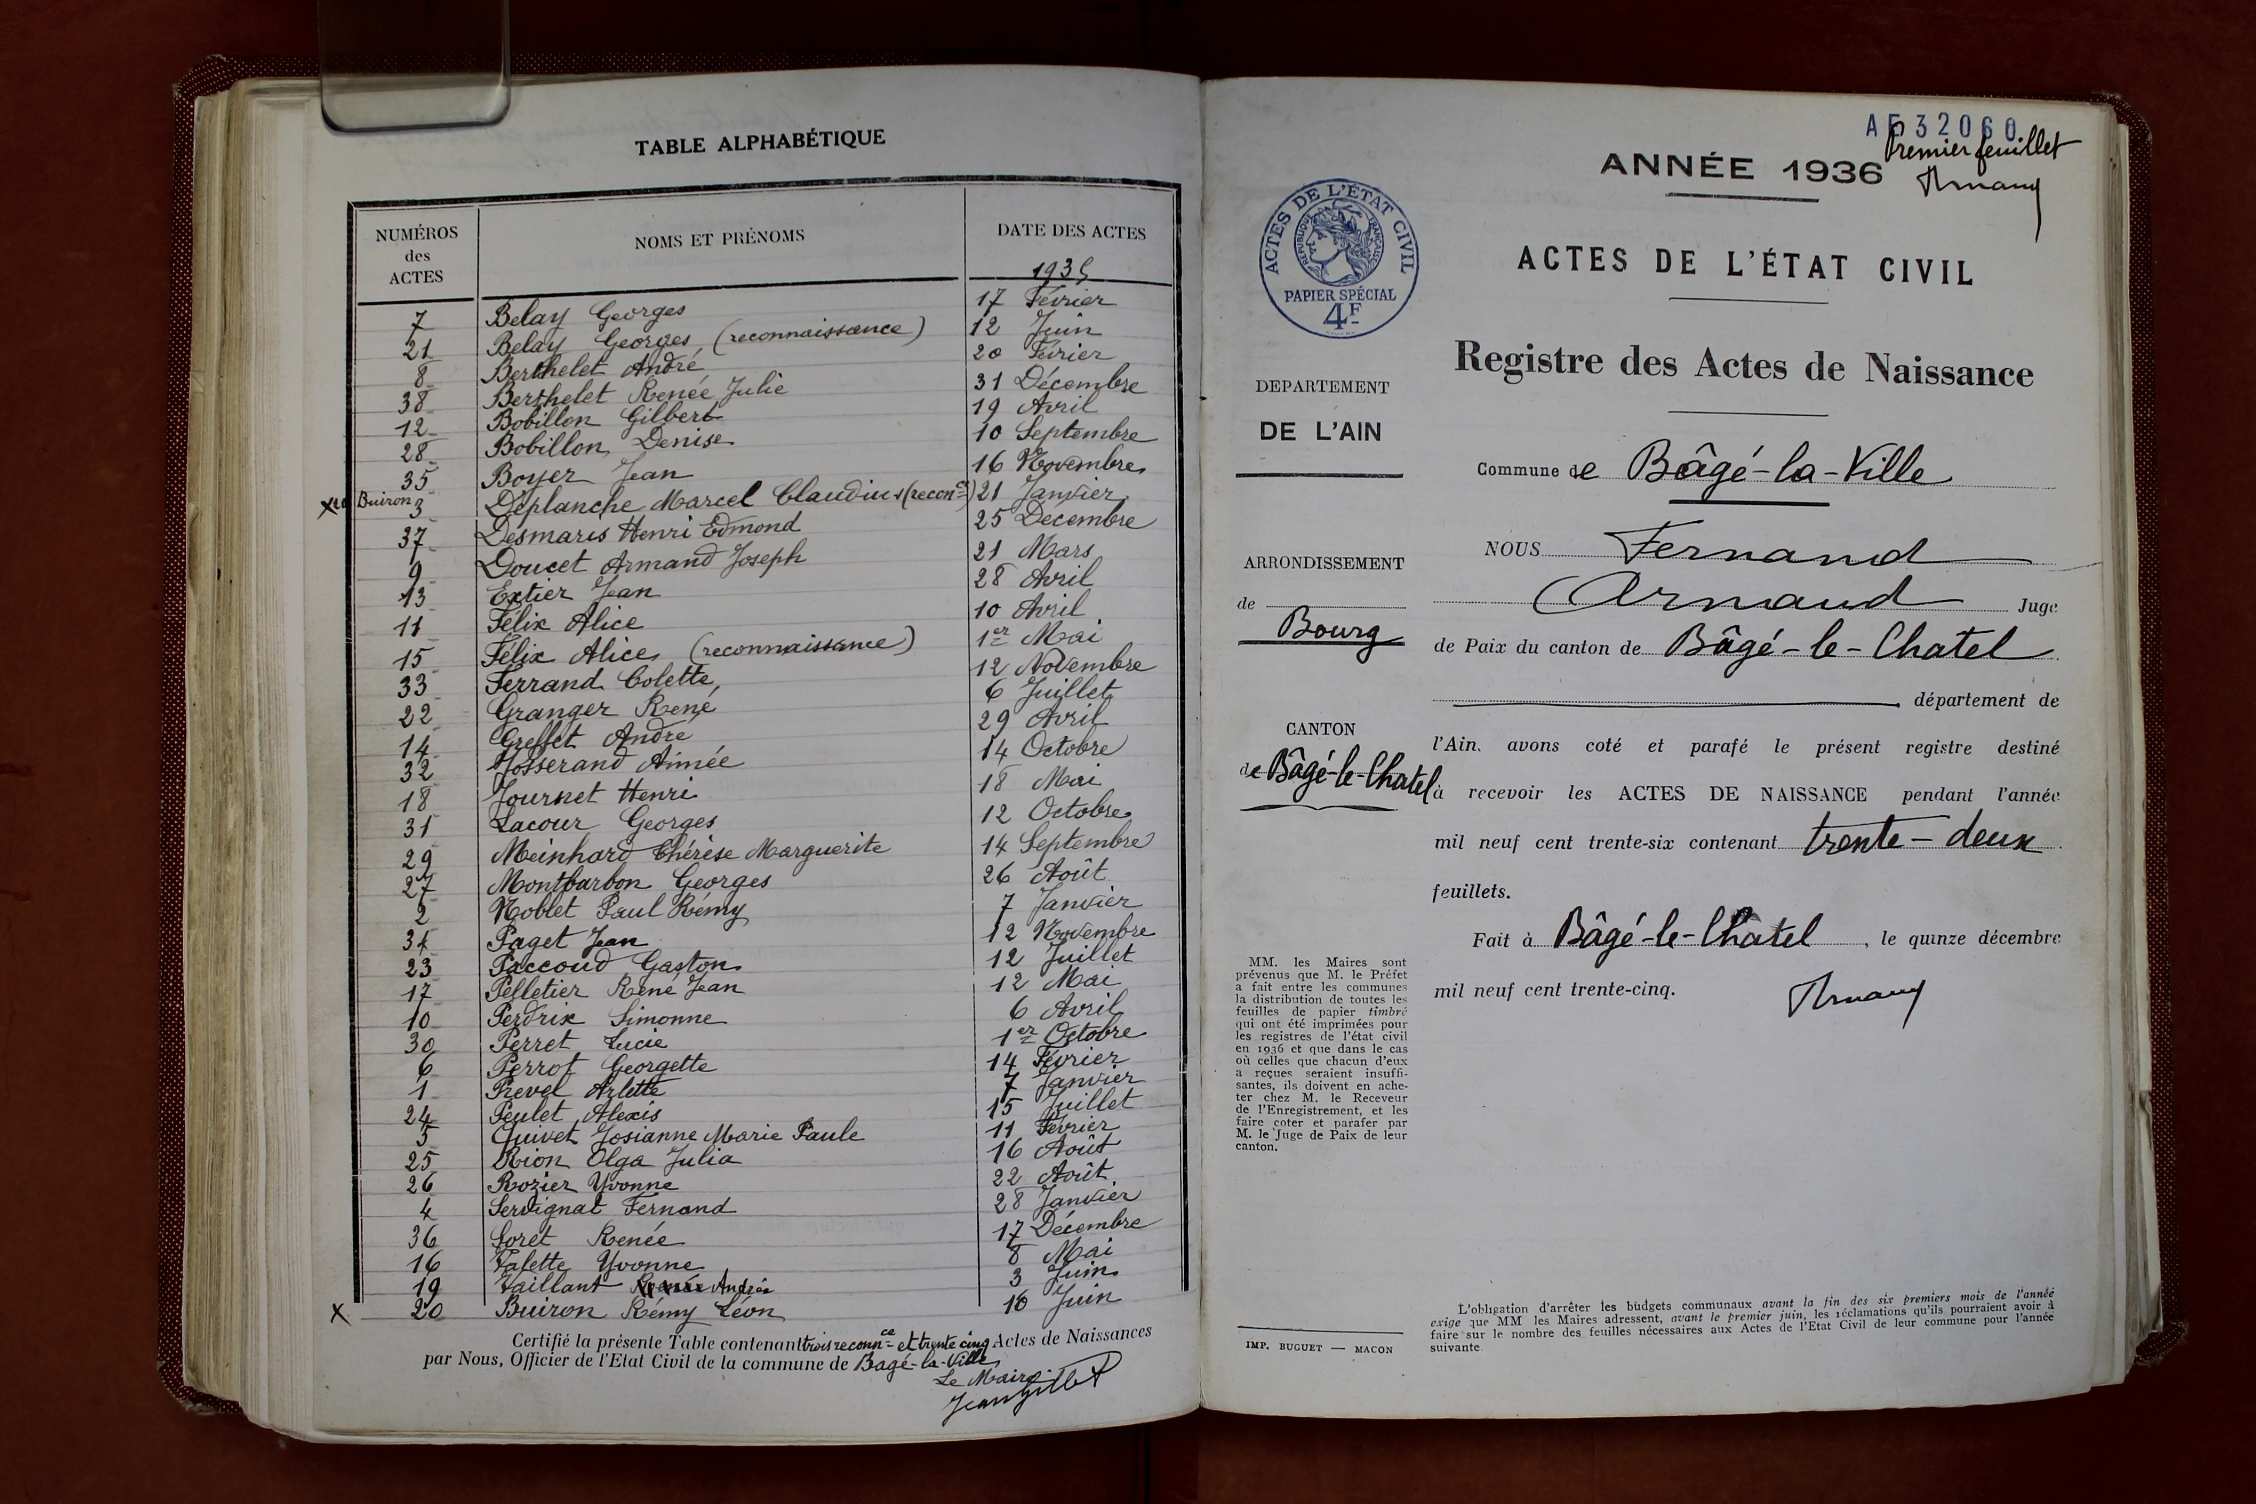 TABLE ALPHABÉTIQUE
NUMÉROS des ACTES | NOMS ET PRÉNOMS | DATE DES ACTES
1935
7 Belay Georges 17 Février
21 Belay Georges (reconnaissance) 12 Juin
8 Berthelet André 20 Février
38 Berthelet Renée Julie 31 Décembre
12 Bobillon Gilbert 19 Avril
28 Bobillon Denise 10 Septembre
35 Boyer Jean 16 Novembre
Buiron 3 Deplanche Marcel Claudius (reconce) 21 Janvier
37 Desmaris Henri Edmond 25 Décembre
9 Doucet Armand Joseph 21 Mars
13 Extier Jean 28 Avril
11 Félix Alice 10 Avril
15 Félix Alice (reconnaissance) 1er Mai
33 Ferrand Colette 12 Novembre
22 Granger René 6 Juillet
14 Greffet André 29 Avril
32 Josserand Aimée 14 Octobre
18 Journet Henri 18 Mai
31 Lacour Georges 12 Octobre
29 Meinhard Thérèse Marguerite 14 Septembre
27 Montbarbon Georges 26 Août
2 Noblet Paul Rémy 7 Janvier
34 Paget Jean 12 Novembre
23 Paccoud Gaston 12 Juillet
17 Pelletier René Jean 12 Mai
10 Perdrix Simonne 6 Avril
30 Perret Lucie 1er Octobre
6 Perrot Georgette 14 Février
1 Prevel Arlette 7 Janvier
24 Peulet Alexis 15 Juillet
5 Quivet Josianne Marie Paule 11 Février
25 Rion Olga Julia 16 Août
26 Rozier Yvonne 22 Août
4 Servignat Fernand 28 Janvier
36 Soret Renée 17 Décembre
16 Valette Yvonne 8 Mai
19 Vaillant Andrée 3 Juin
x 20 Buiron Rémy Léon 10 Juin
Certifié la présente Table contenant trois reconnce et trente cinq Actes de Naissances
par Nous, Officier de l'Etat Civil de la commune de Bagé-la-Ville
Le Maire
AF32060
Premier feuillet
Arnaud
ANNÉE 1936
ACTES DE L'ÉTAT CIVIL
RÉPUBLIQUE FRANÇAISE
PAPIER SPÉCIAL
4F
ACTES DE L'ÉTAT CIVIL
Registre des Actes de Naissance
DEPARTEMENT
DE L'AIN
ARRONDISSEMENT
de
Bourg
CANTON
de Bâgé-le-Chatel
MM. les Maires sont
prévenus que M. le Préfet
a fait entre les communes
la distribution de toutes les
feuilles de papier timbré
qui ont été imprimées pour
les registres de l'état civil
en 1936 et que dans le cas
où celles que chacun d'eux
a reçues seraient insuffi-
santes, ils doivent en ache-
ter chez M. le Receveur
de l'Enregistrement, et les
faire coter et parafer par
M. le Juge de Paix de leur
canton.
IMP. BUGUET — MACON
Commune de Bâgé-la-Ville
NOUS Fernand
Arnaud Juge
de Paix du canton de Bâgé-le-Chatel
département de
l'Ain, avons coté et parafé le présent registre destiné
à recevoir les ACTES DE NAISSANCE pendant l'année
mil neuf cent trente-six contenant trente-deux
feuillets.
Fait à Bâgé-le-Chatel, le quinze décembre
mil neuf cent trente-cinq.
Arnaud
L'obligation d'arrêter les budgets communaux avant la fin des six premiers mois de l'année
exige que MM les Maires adressent, avant le premier juin, les réclamations qu'ils pourraient avoir à
faire sur le nombre des feuilles nécessaires aux Actes de l'Etat Civil de leur commune pour l'année
suivante.